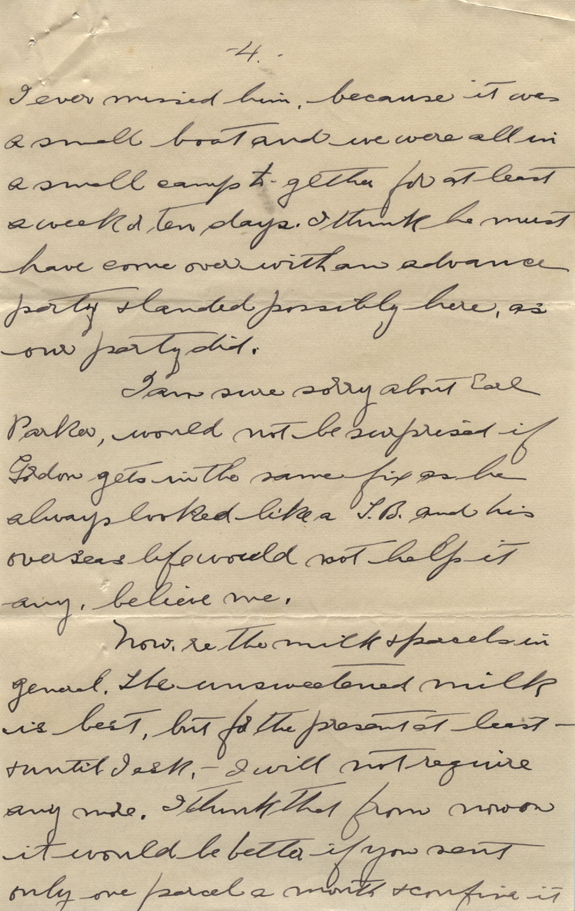 -4.-
I ever missed him, because it was
a small boat and we were all in
a small camp together for at least
a week or ten days. I think he must
have come over with an advance
party & landed possibly here, as
our party did.
I am sure sorry about Earl
Parker, would not be surprised if
Gordon gets in the same fix as he
always looked like a T.B. and his
overseas life would not help it
any, believe me.
Now, re the milk & parcels in
general. The unsweetened milk
is best, but for the present at least -
& until I ask, - I will not require
any more. I think that from now on
it would be better if you sent
only one parcel a month & confine it